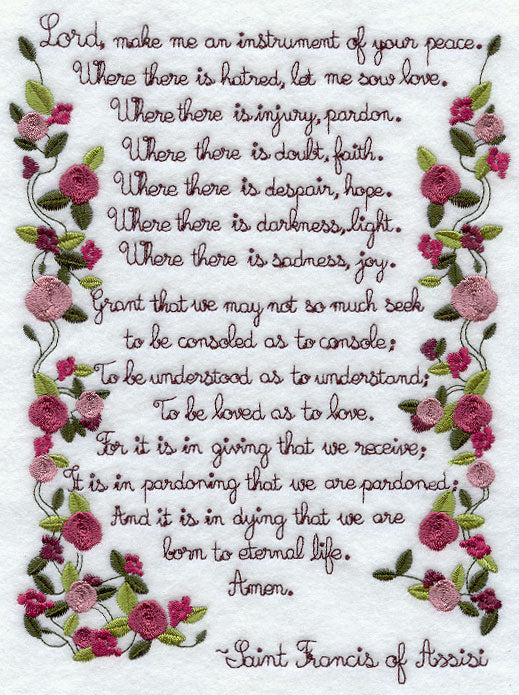 Lord, make me an instrument of your peace.
Where there is hatred, let me sow love.
Where there is injury, pardon.
Where there is doubt, faith.
Where there is despair, hope.
Where there is darkness, light.
Where there is sadness, joy.
Grant that we may not so much seek
to be consoled as to console;
To be understood as to understand;
To be loved as to love.
For it is in giving that we receive;
It is in pardoning that we are pardoned;
And it is in dying that we are
born to eternal life.
Amen.
~Saint Francis of Assisi